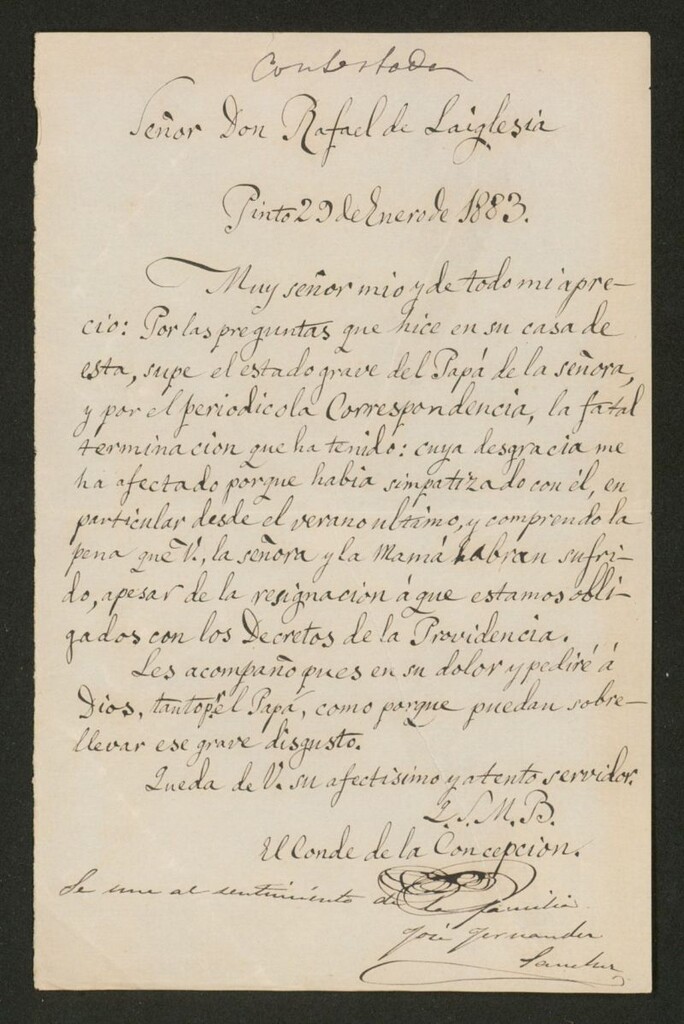 Contestada
Señor Don Rafael de Laiglesia
Pinto 29 de Enero de 1883.
Muy señor mio y de todo mi apre-
cio: Por las preguntas que hice en su casa de
esta, supe el estado grave del Papá de la señora,
y por el periodico la Correspondencia, la fatal
terminacion que ha tenido: cuya desgracia me
ha afectado porque habia simpatizado con él, en
particular desde el verano ultimo, y comprendo la
pena que V., la señora y la Mamá habran sufri-
do, apesar de la resignacion á que estamos obli-
gados con los Decretos de la Providencia.
Les acompaño pues en su dolor y pediré á
Dios, tanto pr. el Papá, como porque puedan sobre-
llevar ese grave disgusto.
Queda de V. su afectisimo y atento servidor.
Q.S.M.B.
El Conde de la Concepcion.
Se une al sentimiento de la familia
José Fernandez
Sanchez